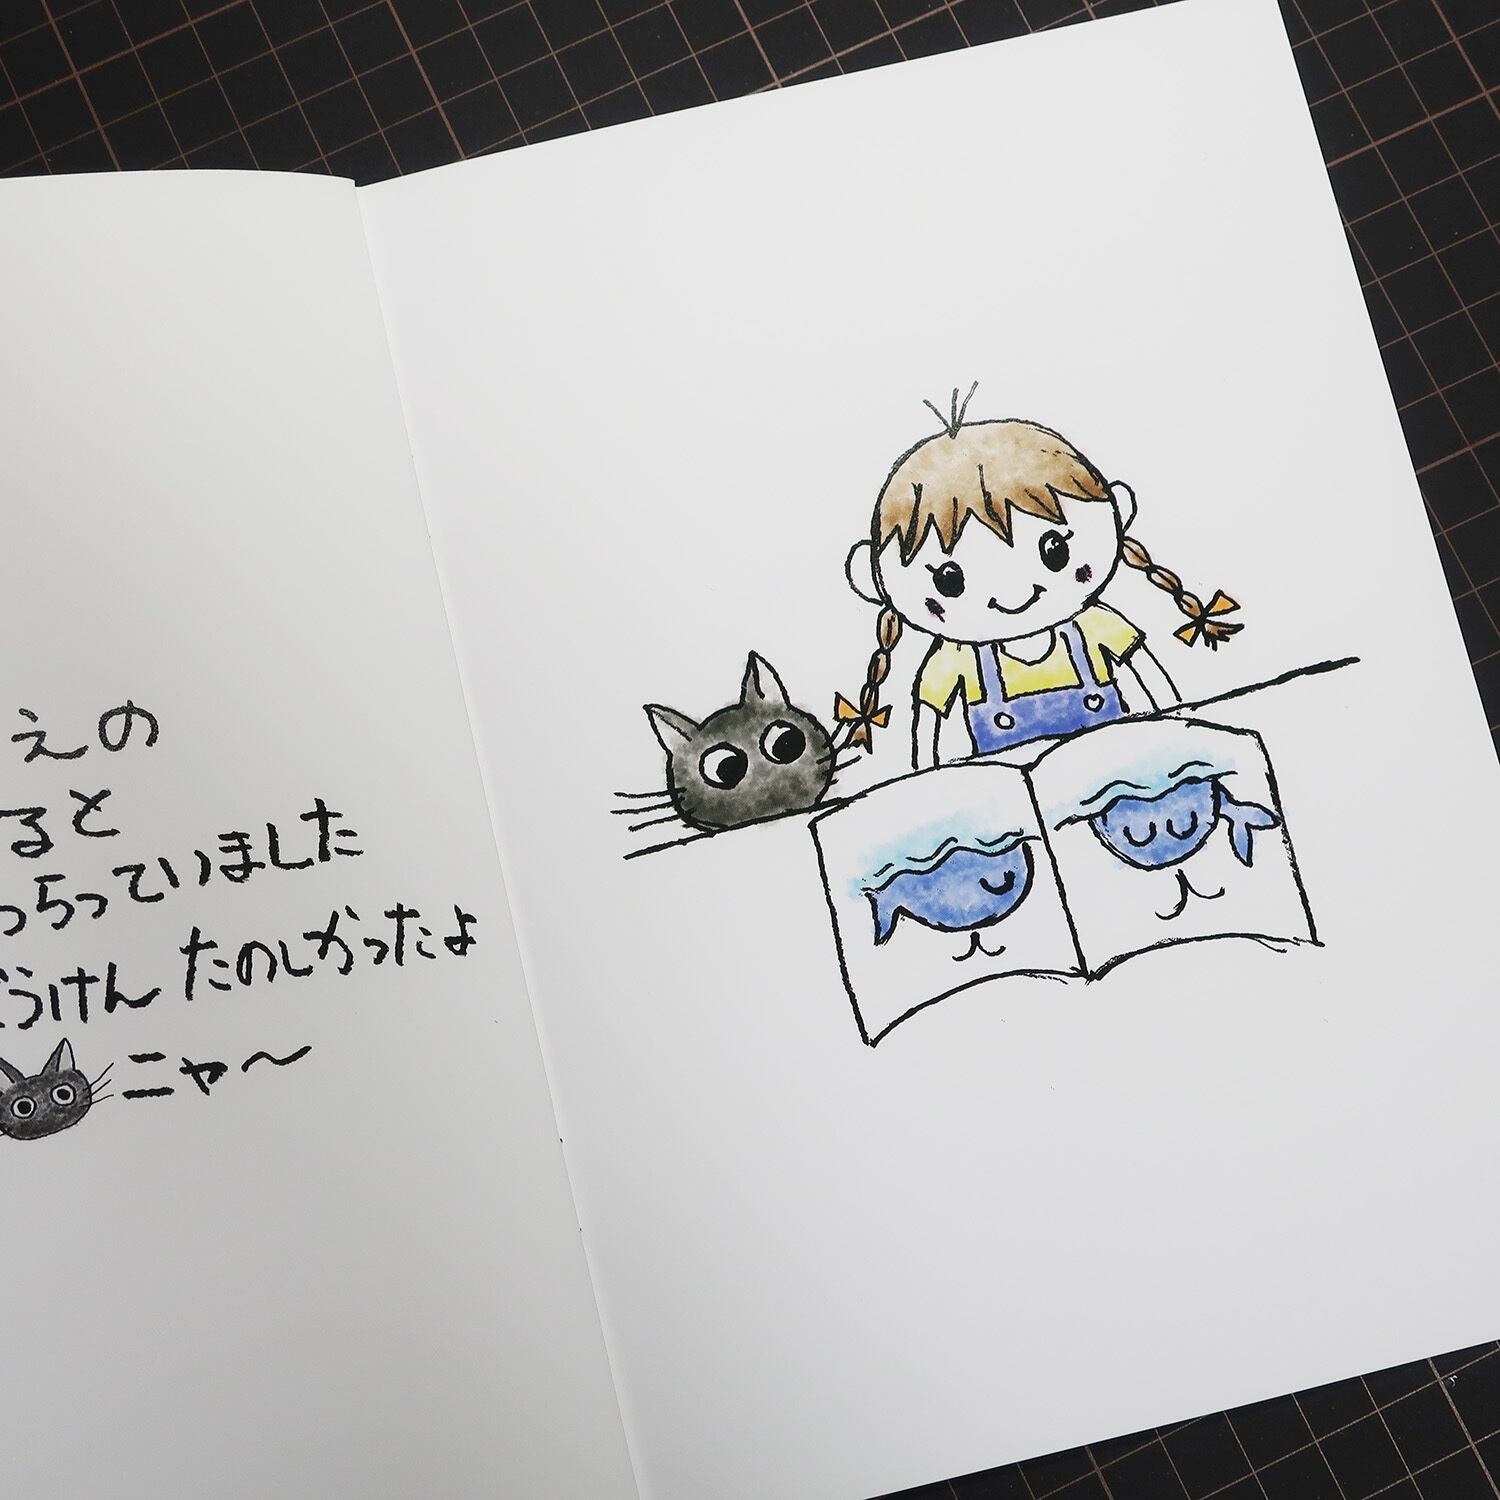 えの
ると
っらっていました
うけん たのしかったよ
ニャ〜